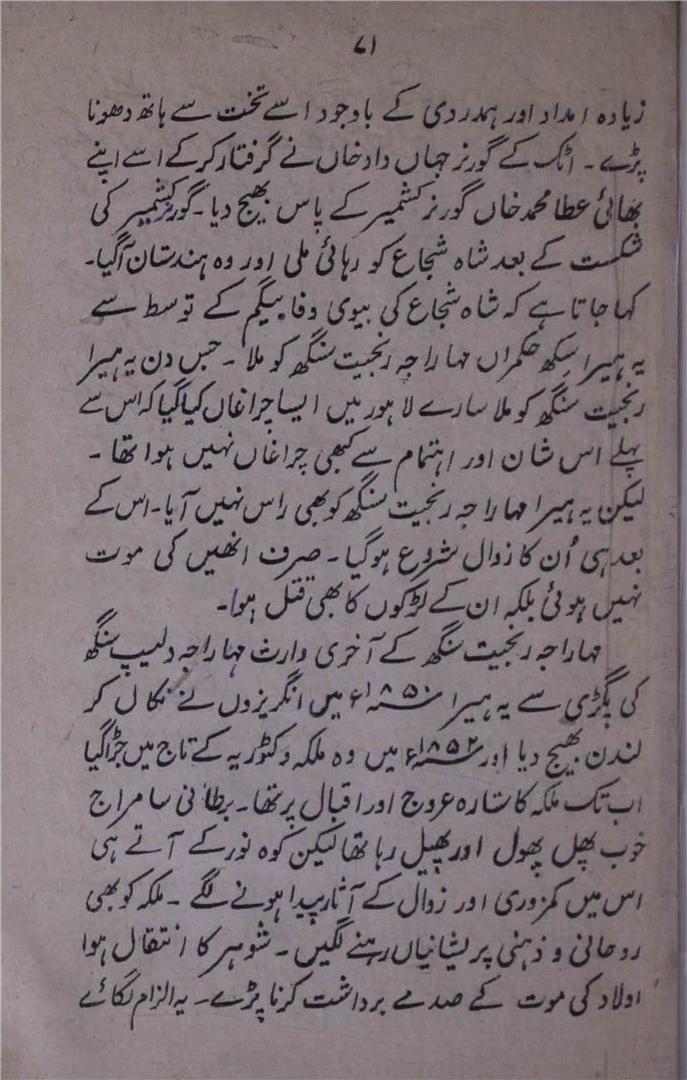 ۷۱
زیادہ امداد اور ہمدردی کے باوجود اسے تخت سے ہاتھ دھونا
پڑے۔ اٹک کے گورنر جہاں داد خاں نے گرفتار کرکے اسے اپنے
بھائی عطا محمد خاں گورنر کشمیر کے پاس بھیج دیا۔ گورنر کشمیر کی
شکست کے بعد شاہ شجاع کو رہائی ملی اور وہ ہندستان آگیا۔
کہا جاتا ہے کہ شاہ شجاع کی بیوی وفا بیگم کے توسط سے
یہ ہیرا سکھ حکمراں مہاراجہ رنجیت سنگھ کو ملا۔ جس دن یہ ہیرا
رنجیت سنگھ کو ملا سارے لاہور میں ایسا چراغاں کیا گیا کہ اس سے
پہلے اس شان اور اہتمام سے کبھی چراغاں نہیں ہوا تھا۔
لیکن یہ ہیرا مہاراجہ رنجیت سنگھ کو بھی راس نہیں آیا۔ اس کے
بعد ہی اُن کا زوال شروع ہوگیا۔ صرف انھیں کی موت
نہیں ہوئی بلکہ ان کے لڑکوں کا بھی قتل ہوا۔
مہاراجہ رنجیت سنگھ کے آخری وارث مہاراجہ دلیپ سنگھ
کی پگڑی سے یہ ہیرا ۱۸۵۰ء میں انگریزوں نے نکال کر
لندن بھیج دیا اور ۱۸۵۲ء میں وہ ملکہ وکٹوریہ کے تاج میں جڑا گیا
اب تک ملکہ کا ستارہ عروج اور اقبال پر تھا۔ برطانی سامراج
خوب پھل پھول اور پھیل رہا تھا لیکن کوہ نور کے آتے ہی
اس میں کمزوری اور زوال کے آثار پیدا ہونے لگے۔ ملکہ کو بھی
روحانی و ذہنی پریشانیاں رہنے لگیں۔ شوہر کا انتقال ہوا
اولاد کی موت کے صدمے برداشت کرنا پڑے۔ یہ الزام لگائے